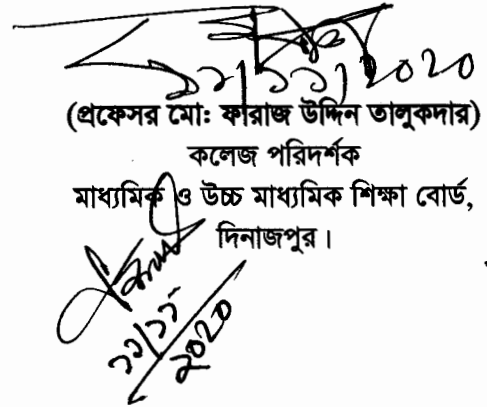 ১২/১১/2020
(প্রফেসর মো: ফারাজ উদ্দিন তালুকদার)
কলেজ পরিদর্শক
মাধ্যমিক ও উচ্চ মাধ্যমিক শিক্ষা বোর্ড,
দিনাজপুর।
১১/১১
2020